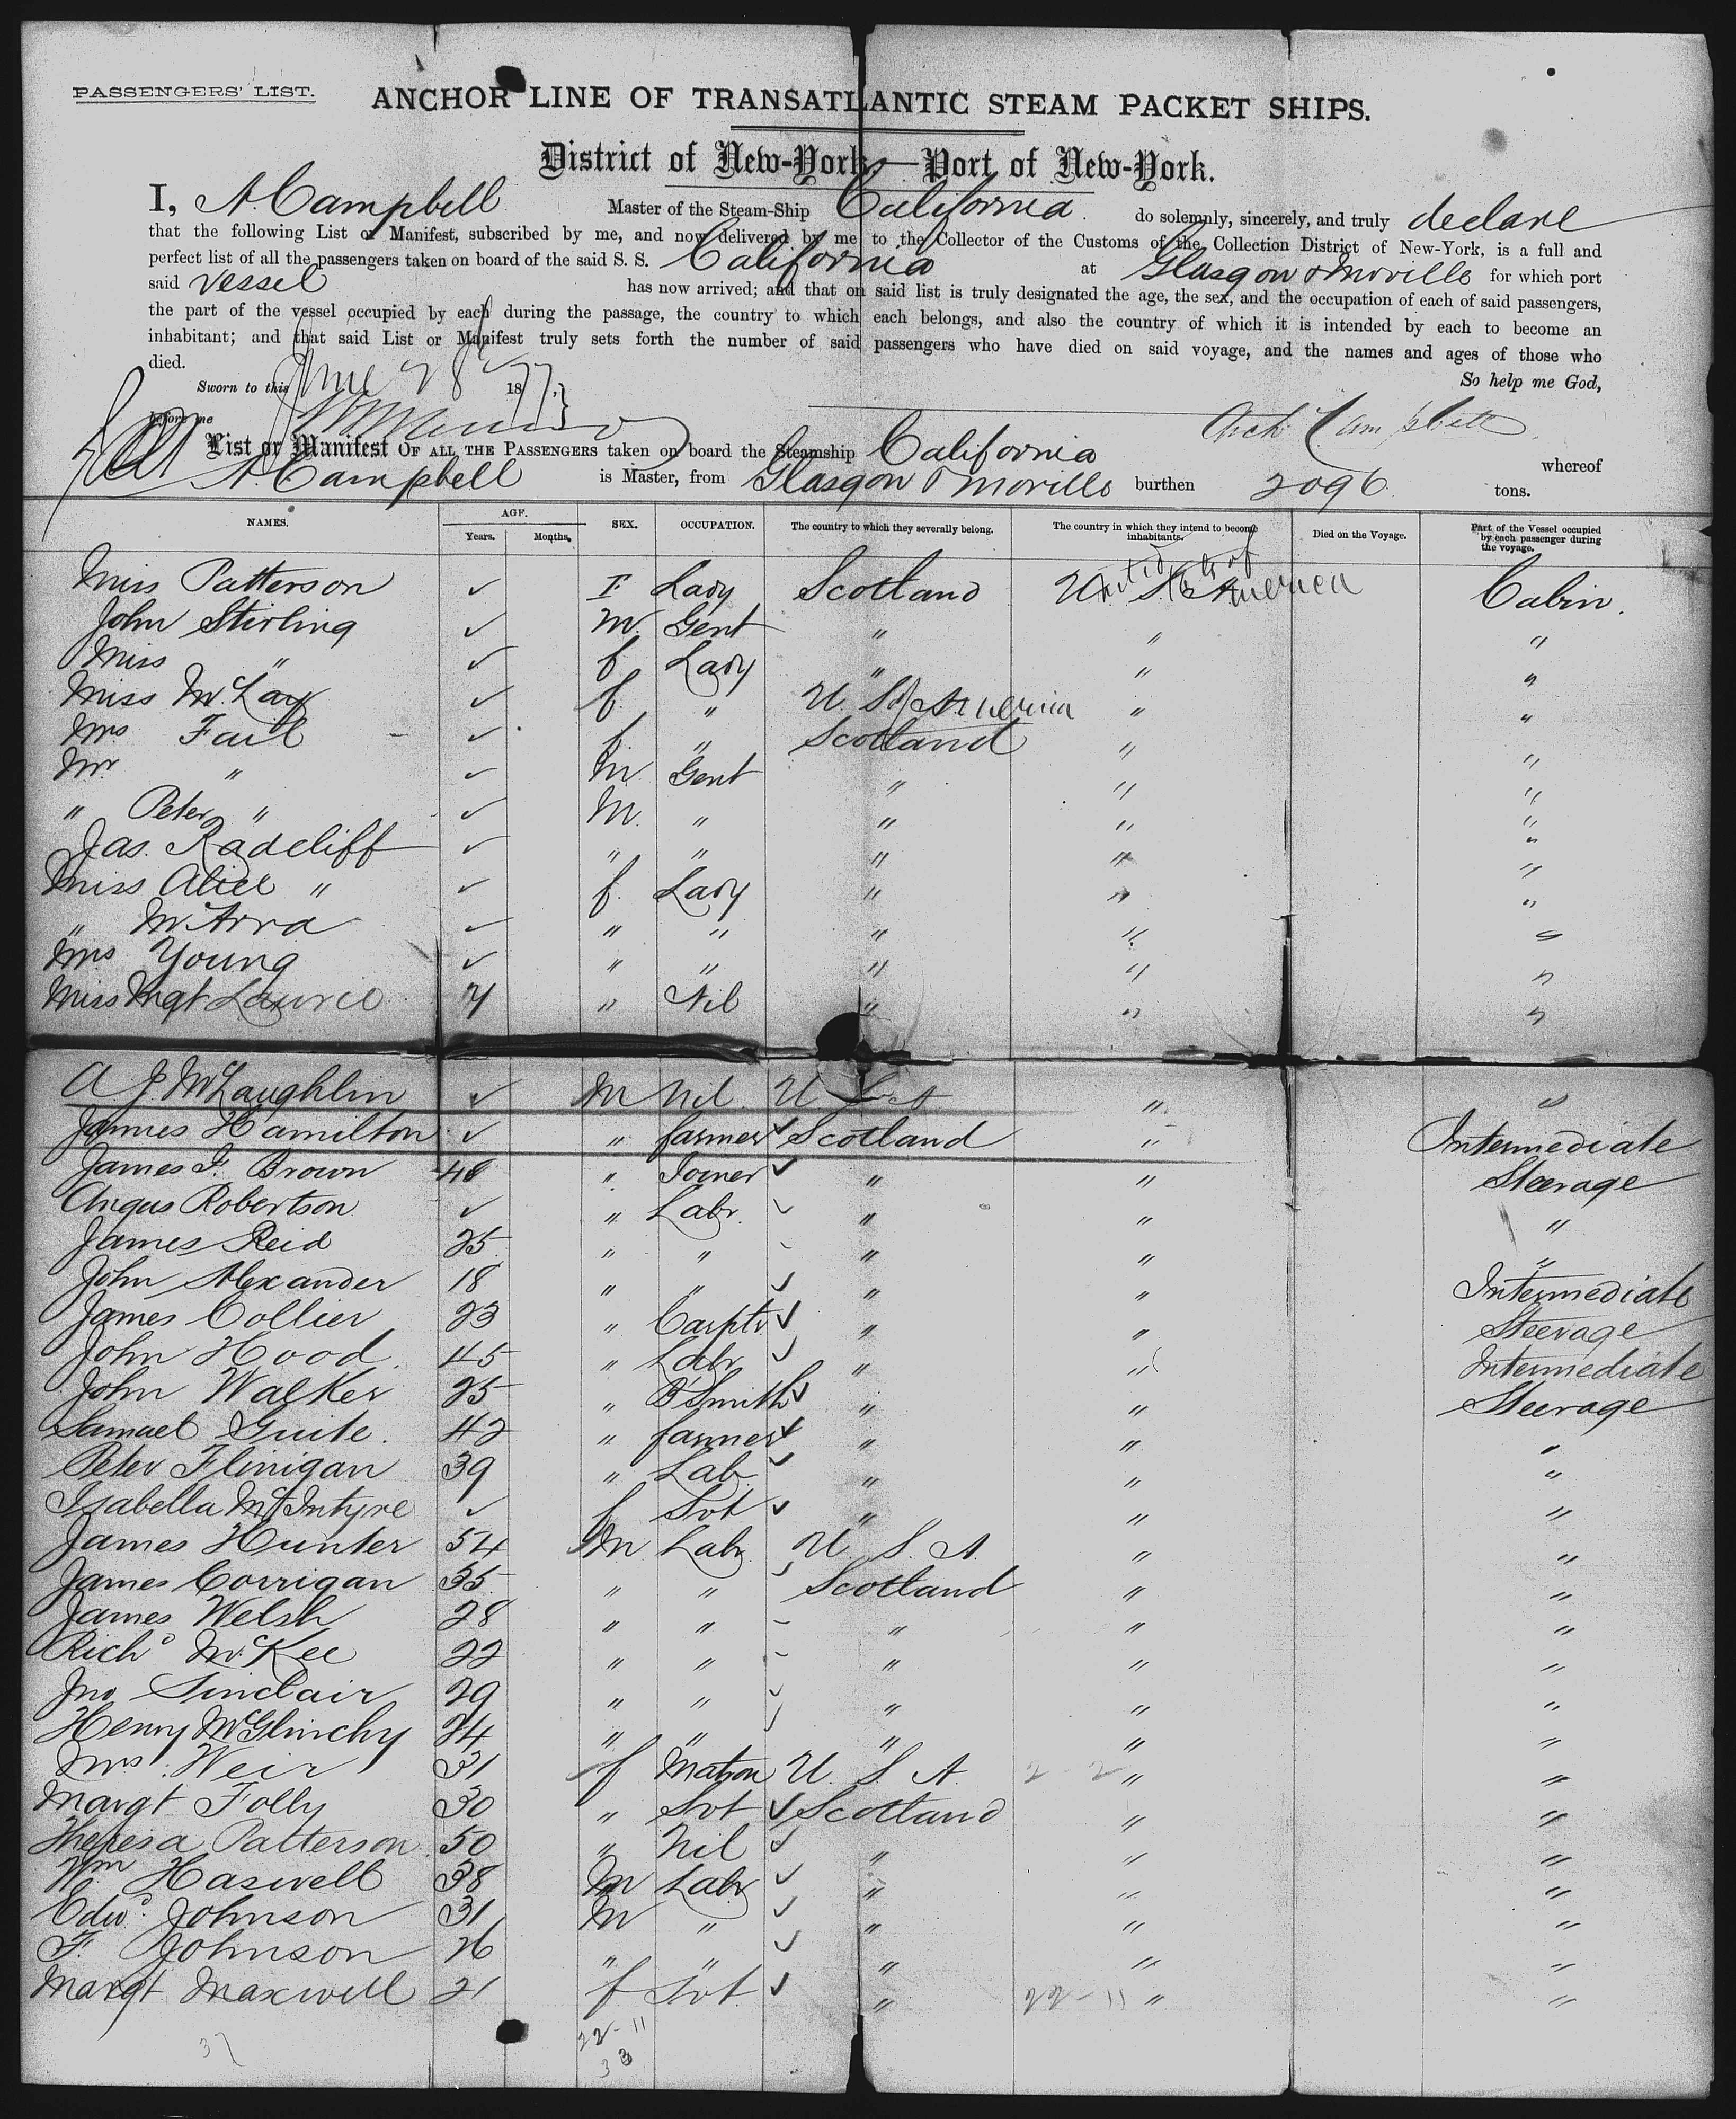 PASSENGERS' LIST.
ANCHOR LINE OF TRANSATLANTIC STEAM PACKET SHIPS.
District of New-York—Port of New-York.
I, A. Campbell Master of the Steam-Ship California do solemnly, sincerely, and truly declare
that the following List or Manifest, subscribed by me, and now delivered by me to the Collector of the Customs of the Collection District of New-York, is a full and
perfect list of all the passengers taken on board of the said S. S. California at Glasgow & Moville for which port
said Vessel has now arrived; and that on said list is truly designated the age, the sex, and the occupation of each of said passengers,
the part of the vessel occupied by each during the passage, the country to which each belongs, and also the country of which it is intended by each to become an
inhabitant; and that said List or Manifest truly sets forth the number of said passengers who have died on said voyage, and the names and ages of those who
died.
So help me God,
Sworn to this June 28 1877,
before me
Arch Campbell
List or Manifest OF ALL THE PASSENGERS taken on board the Steamship California whereof
A. Campbell is Master, from Glasgow & Moville burthen 2096 tons.
NAMES. AGE. Years. Months. SEX. OCCUPATION. The country to which they severally belong. The country in which they intend to become inhabitants. Died on the Voyage. Part of the Vessel occupied by each passenger during the voyage.
Miss Patterson ✓ F Lady Scotland United St of America Cabin.
John Stirling ✓ M. Gent " " "
Miss " ✓ f Lady " " "
Miss McLay ✓ f " U. S of America " "
Mrs Fail ✓ f. " Scotland " "
Mr " ✓ M. Gent " " "
" Peter " ✓ M. " " " "
Jas. Radcliff ✓ " " " " "
Miss Alice " ✓ f. Lady " " "
" McArra ✓ " " " " "
Mrs Young ✓ " " " " "
Miss Mgt Laurie 7 " Nil " " "
A J McLaughlin ✓ M Nil. U S A " "
James Hamilton ✓ " farmer ✓ Scotland " Intermediate
James F. Brown 48 " Joiner ✓ " " Steerage
Angus Robertson ✓ " Labr. ✓ " " "
James Reid 25. " " " " "
John Alexander 18 " " ✓ " " Intermediate
James Collier 23 " Carptr ✓ " " Steerage
John Hood. 45 " Labr ✓ " " Intermediate
John Walker 25 " B'Smith ✓ " " Steerage
Samuel Guite. 42 " farmer ✓ " " "
Peter Flinigan 39 " Lab. ✓ " " "
Isabella McIntyre ✓ f Svt ✓ " " "
James Hunter 54 M Labr U. S. A. " "
James Corrigan 35. " " ✓ Scotland " "
James Welsh 28 " " " " "
Richd McKee 22 " " " " "
Jno Sinclair 29 " " ✓ " " "
Henry McGlinchy 24 " " ✓ " " "
Mrs. Weir 31 f Matron U. S. A. " "
Margt Folly 30 " Svt ✓ Scotland " "
Theresa Patterson 50 " Nil ✓ " " "
Wm Haswell 38 M Labr ✓ " " "
Edwd. Johnson 31 M " ✓ " " "
F. Johnson 26 " " ✓ " " "
Margt Maxwell 21 f Svt. ✓ " 22-11 " "
37
22-11
33